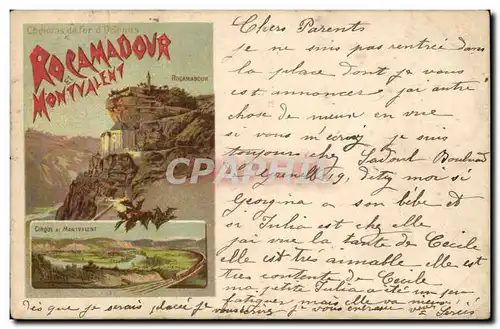 Chemins de fer d'Orléans
ROCAMADOUR
ET
MONTVALENT
ROCAMADOUR
CIRQUE DE MONTVALENT
Chers Parents
je ne suis pas rentrée dans
la place dont je vous
est annoncer j'ai autre
chose de mieux en vue
si vous m'écrivez je suis
toujours chez Boulvard
9, dites moi si
Georgina a son bébé et
si Julia est chez elle
j'ai vue la tante de Cecile
elle est tres aimable elle est
tres contente de Cecile
ma petite Julia a été un peu
fatiguer mais elle va mieux
Dès que je serais placée je vous
je vous
CPARAMA